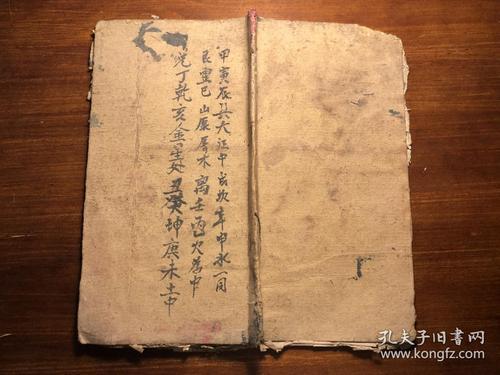 甲寅辰巽大江中戌坎辛申水一同
山原屬木離壬丙火中
兌丁乾亥金生处丑癸坤庚未土中
孔夫子旧书网
www.kongfz.com